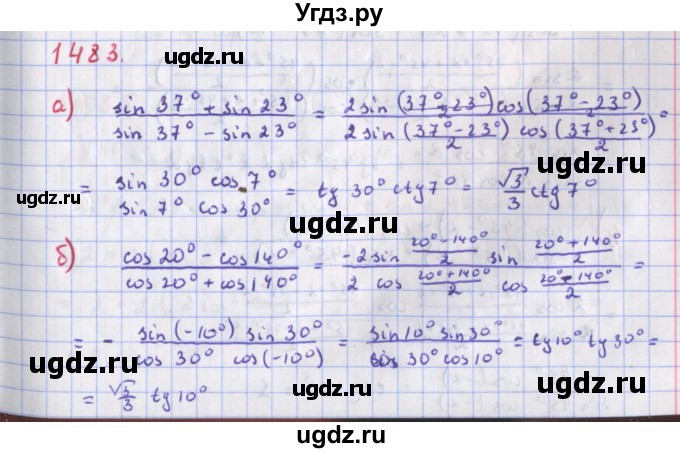 Угдз.ру
1483.
а) (sin 37° + sin 23°)/(sin 37° - sin 23°) = (2 sin (37° 23°)/2 cos (37° - 23°)/2)/(2 sin (37° - 23°)/2 cos (37° + 23°)/2) =
= (sin 30° cos 7°)/(sin 7° cos 30°) = tg 30° ctg 7° = √3/3 ctg 7°
б) (cos 20° - cos 140°)/(cos 20° + cos 140°) = (-2 sin (20° - 140°)/2 sin (20° + 140°)/2)/(2 cos (20° + 140°)/2 cos (20° - 140°)/2) =
= - (sin (-10°) sin 30°)/(cos 30° cos (-10°)) = (sin 10° sin 30°)/(cos 30° cos 10°) = tg 10° tg 30° =
= √3/3 tg 10°
ugdz.ru
ugdz.ru
ugdz.ru
ugdz.ru
ugdz.ru
ugdz.ru
ugdz.ru
ugdz.ru
ugdz.ru
ugdz.ru
ugdz.ru
ugdz.ru